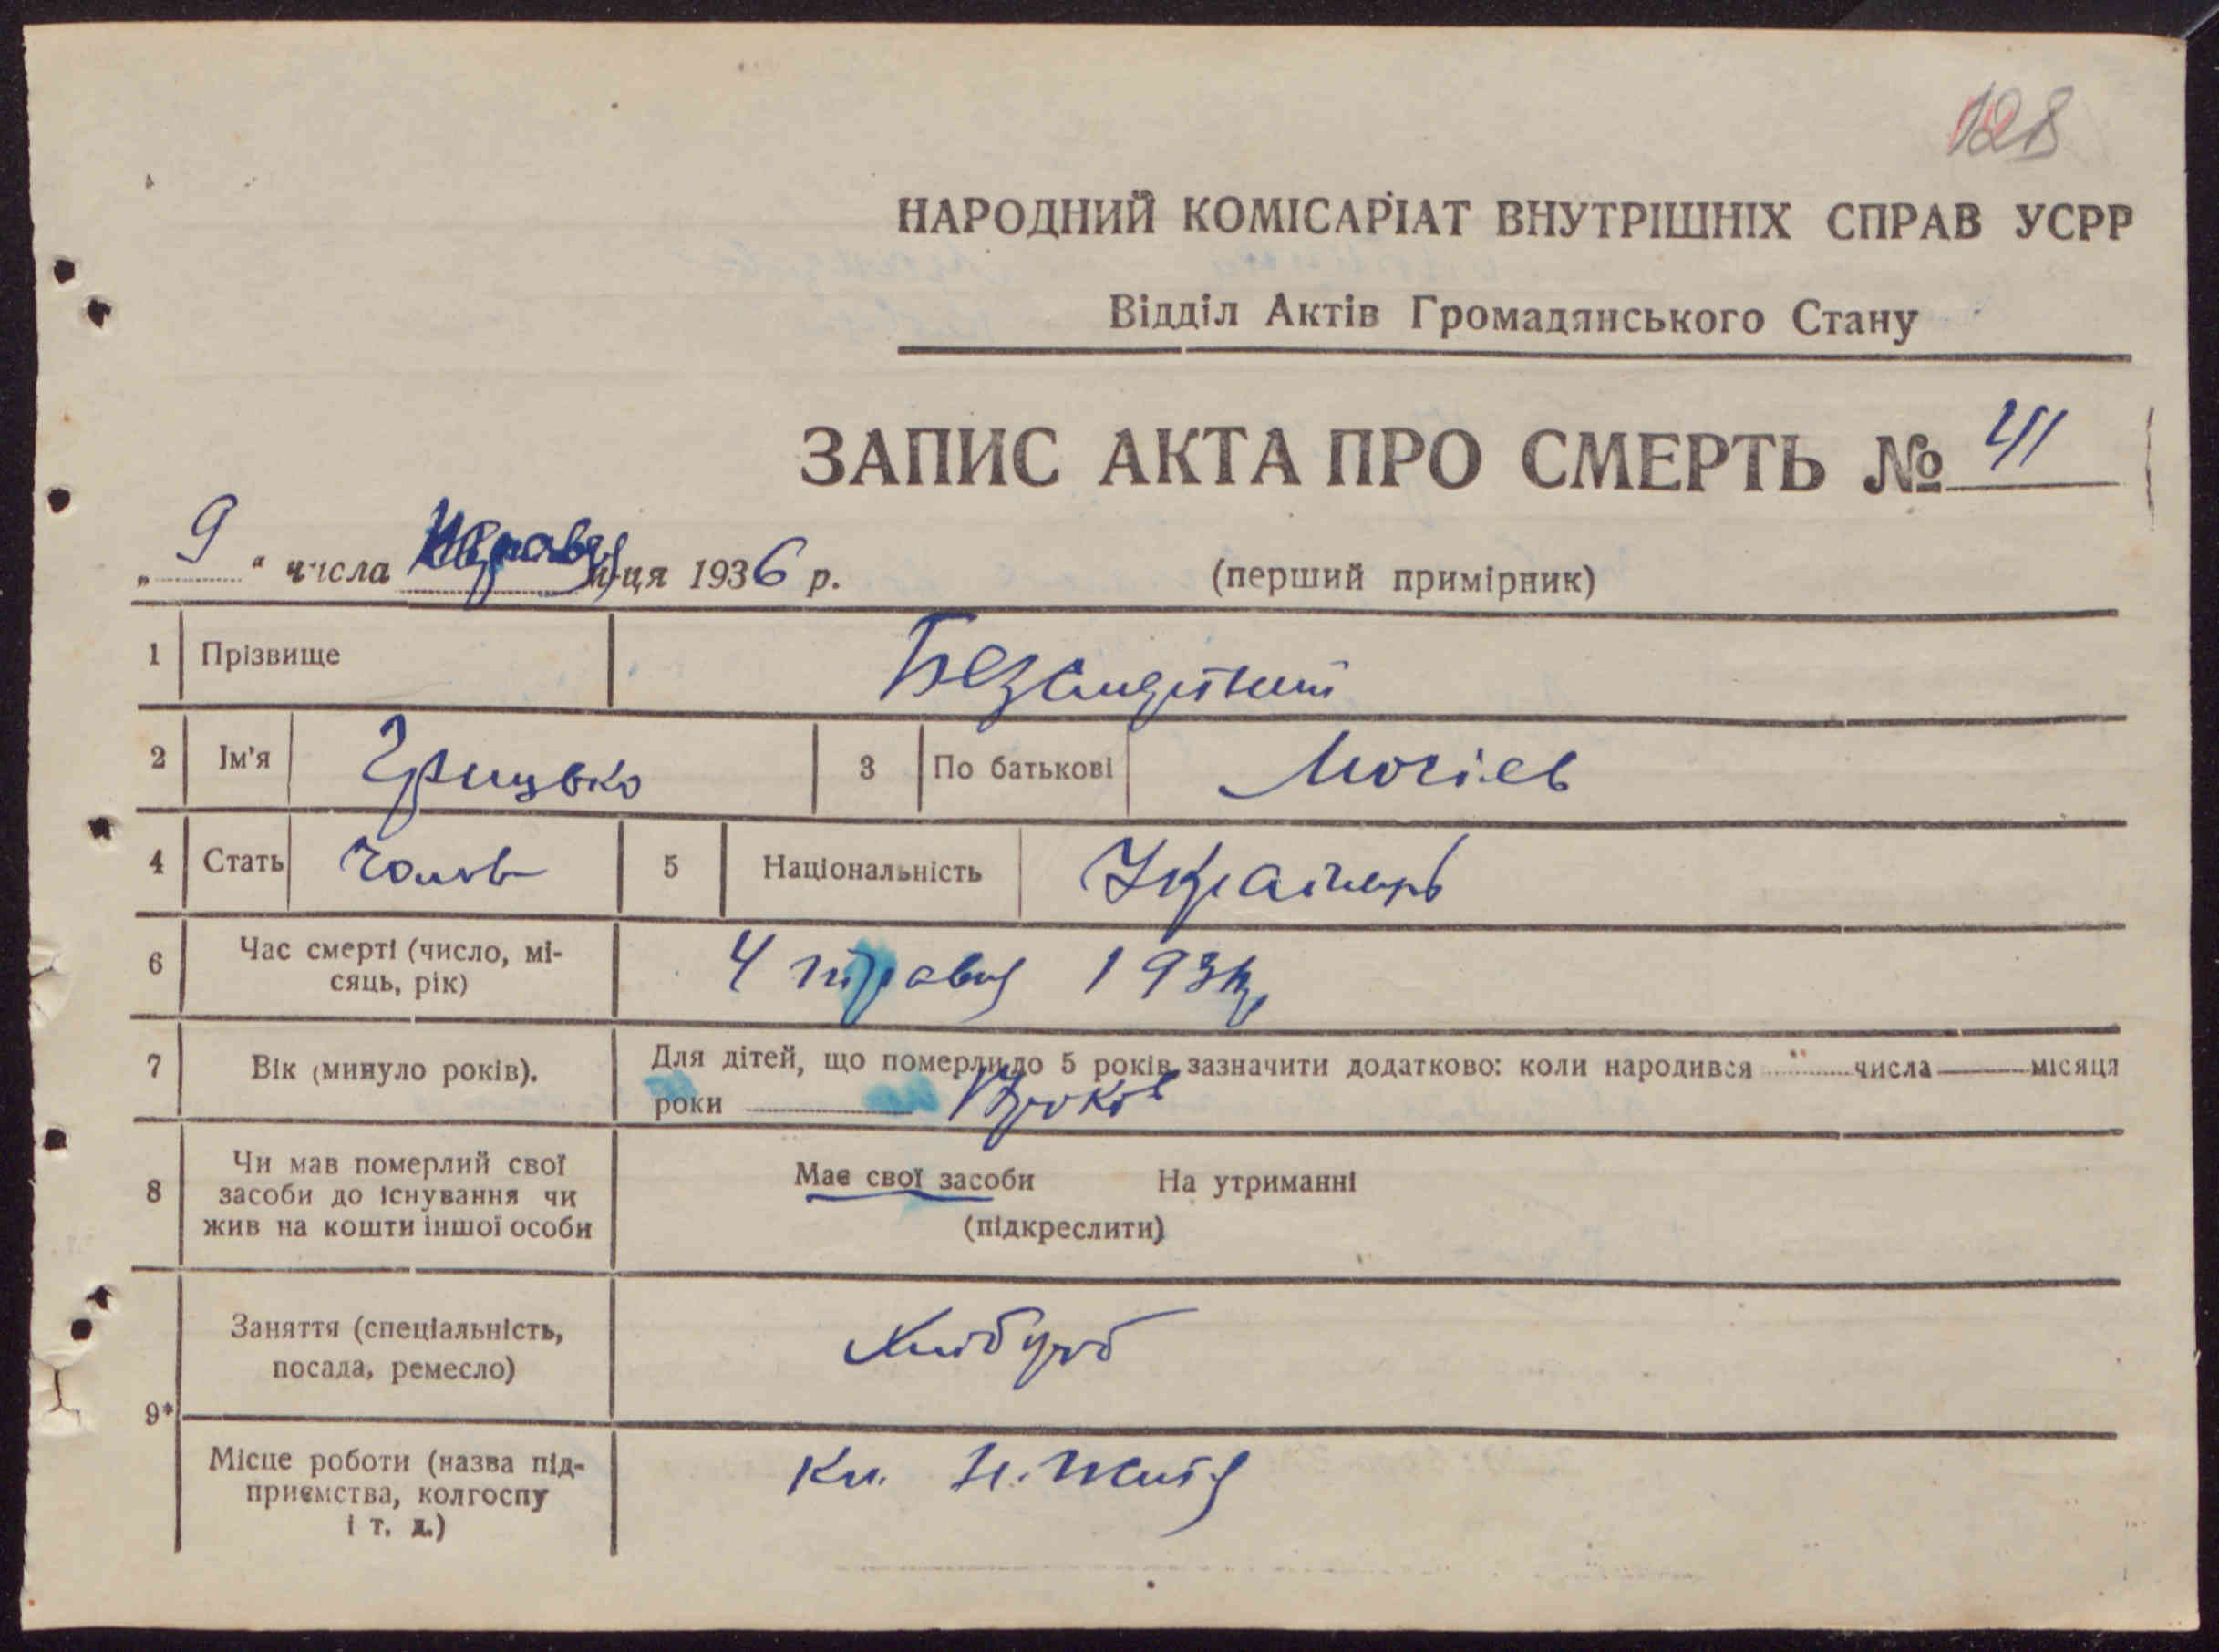 128
НАРОДНИЙ КОМІСАРІАТ ВНУТРІШНІХ СПРАВ УСРР
Відділ Актів Громадянського Стану
ЗАПИС АКТА ПРО СМЕРТЬ № 41
„9“ числа м-ця 1936 р. (перший примірник)
1 Прізвище
2 Ім'я Грицько 3 По батькові
4 Стать Чолов 5 Національність Українець
6 Час смерті (число, мі-
сяць, рік) 4 травня
7 Вік (минуло років). Для дітей, що померли до 5 років зазначити додатково: коли народився числа місяця
роки років
8 Чи мав померлий свої
засоби до існування чи
жив на кошти іншої особи
Має свої засоби На утриманні
(підкреслити)
9* Заняття (спеціальність,
посада, ремесло) Хлібороб
Місце роботи (назва під-
приємства, колгоспу
і т. д.)